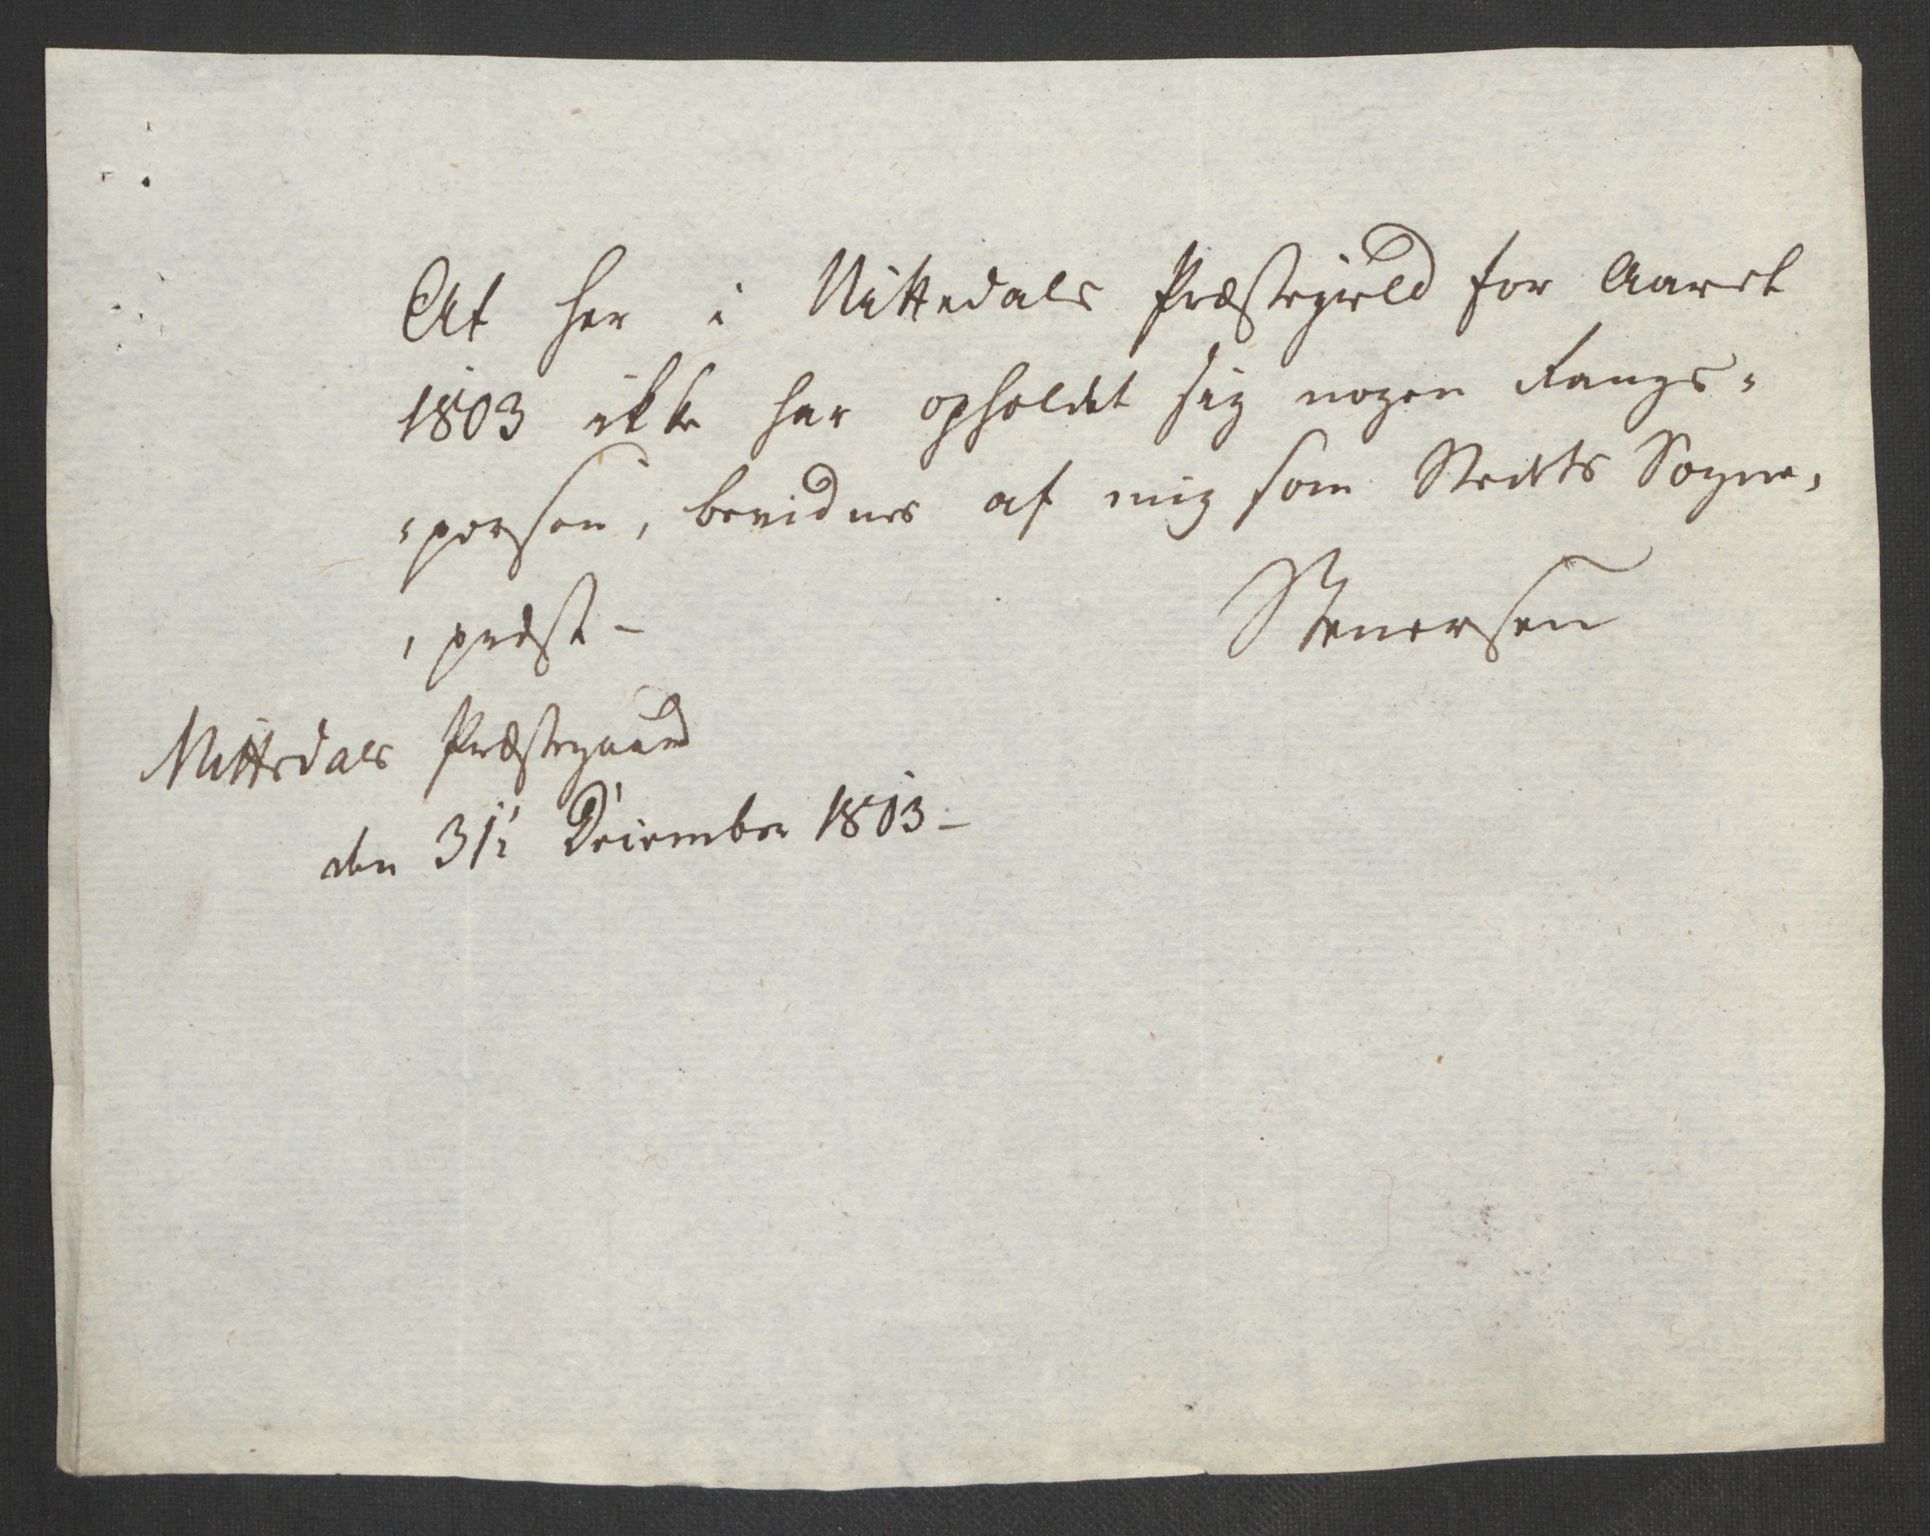 At her i Nittedals Præstegield for Aaret
1803 ikke har opholdet sig nogen Rangs-
-person, bevidnes af mig som Stedets Sogne-
-præst -
Stenersen
Nittedals Præstegaard
den 31 December 1803 -